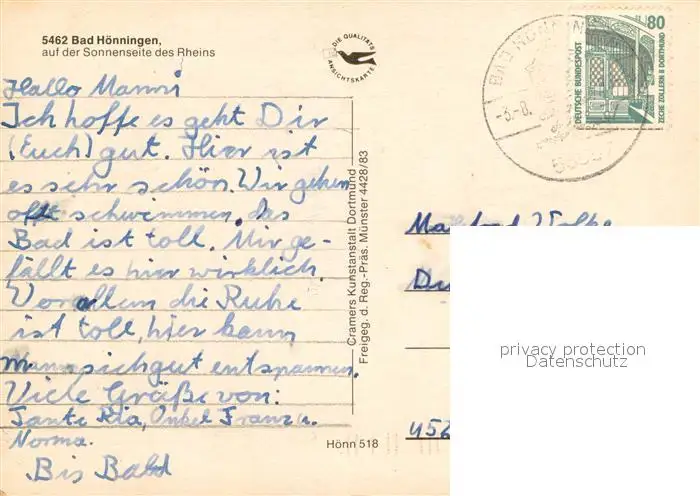 5462 Bad Hönningen,
auf der Sonnenseite des Rheins
DIE QUALITÄTS
ANSICHTSKARTE
Hallo Manni
Ich hoffe es geht Dir
(Euch) gut. Hier ist
es sehr schön. Wir gehen
oft schwimmen, das
Bad ist toll. Mir ge-
fällt es hier wirklich.
Vorallem die Ruhe
ist toll, hier kann
mann sich gut entspannen.
Viele Grüße von:
Tante Ria, Onkel Franz u.
Norma.
Bis Bald
Cramers Kunstanstalt Dortmund
Freigeg. d. Reg.-Präs. Münster 4428/83
Hönn 518
BAD HÖNNIN
-3.-8.
80
DEUTSCHE BUNDESPOST
ZECHE ZOLLERN II DORTMUND
Du
452
privacy protection
Datenschutz